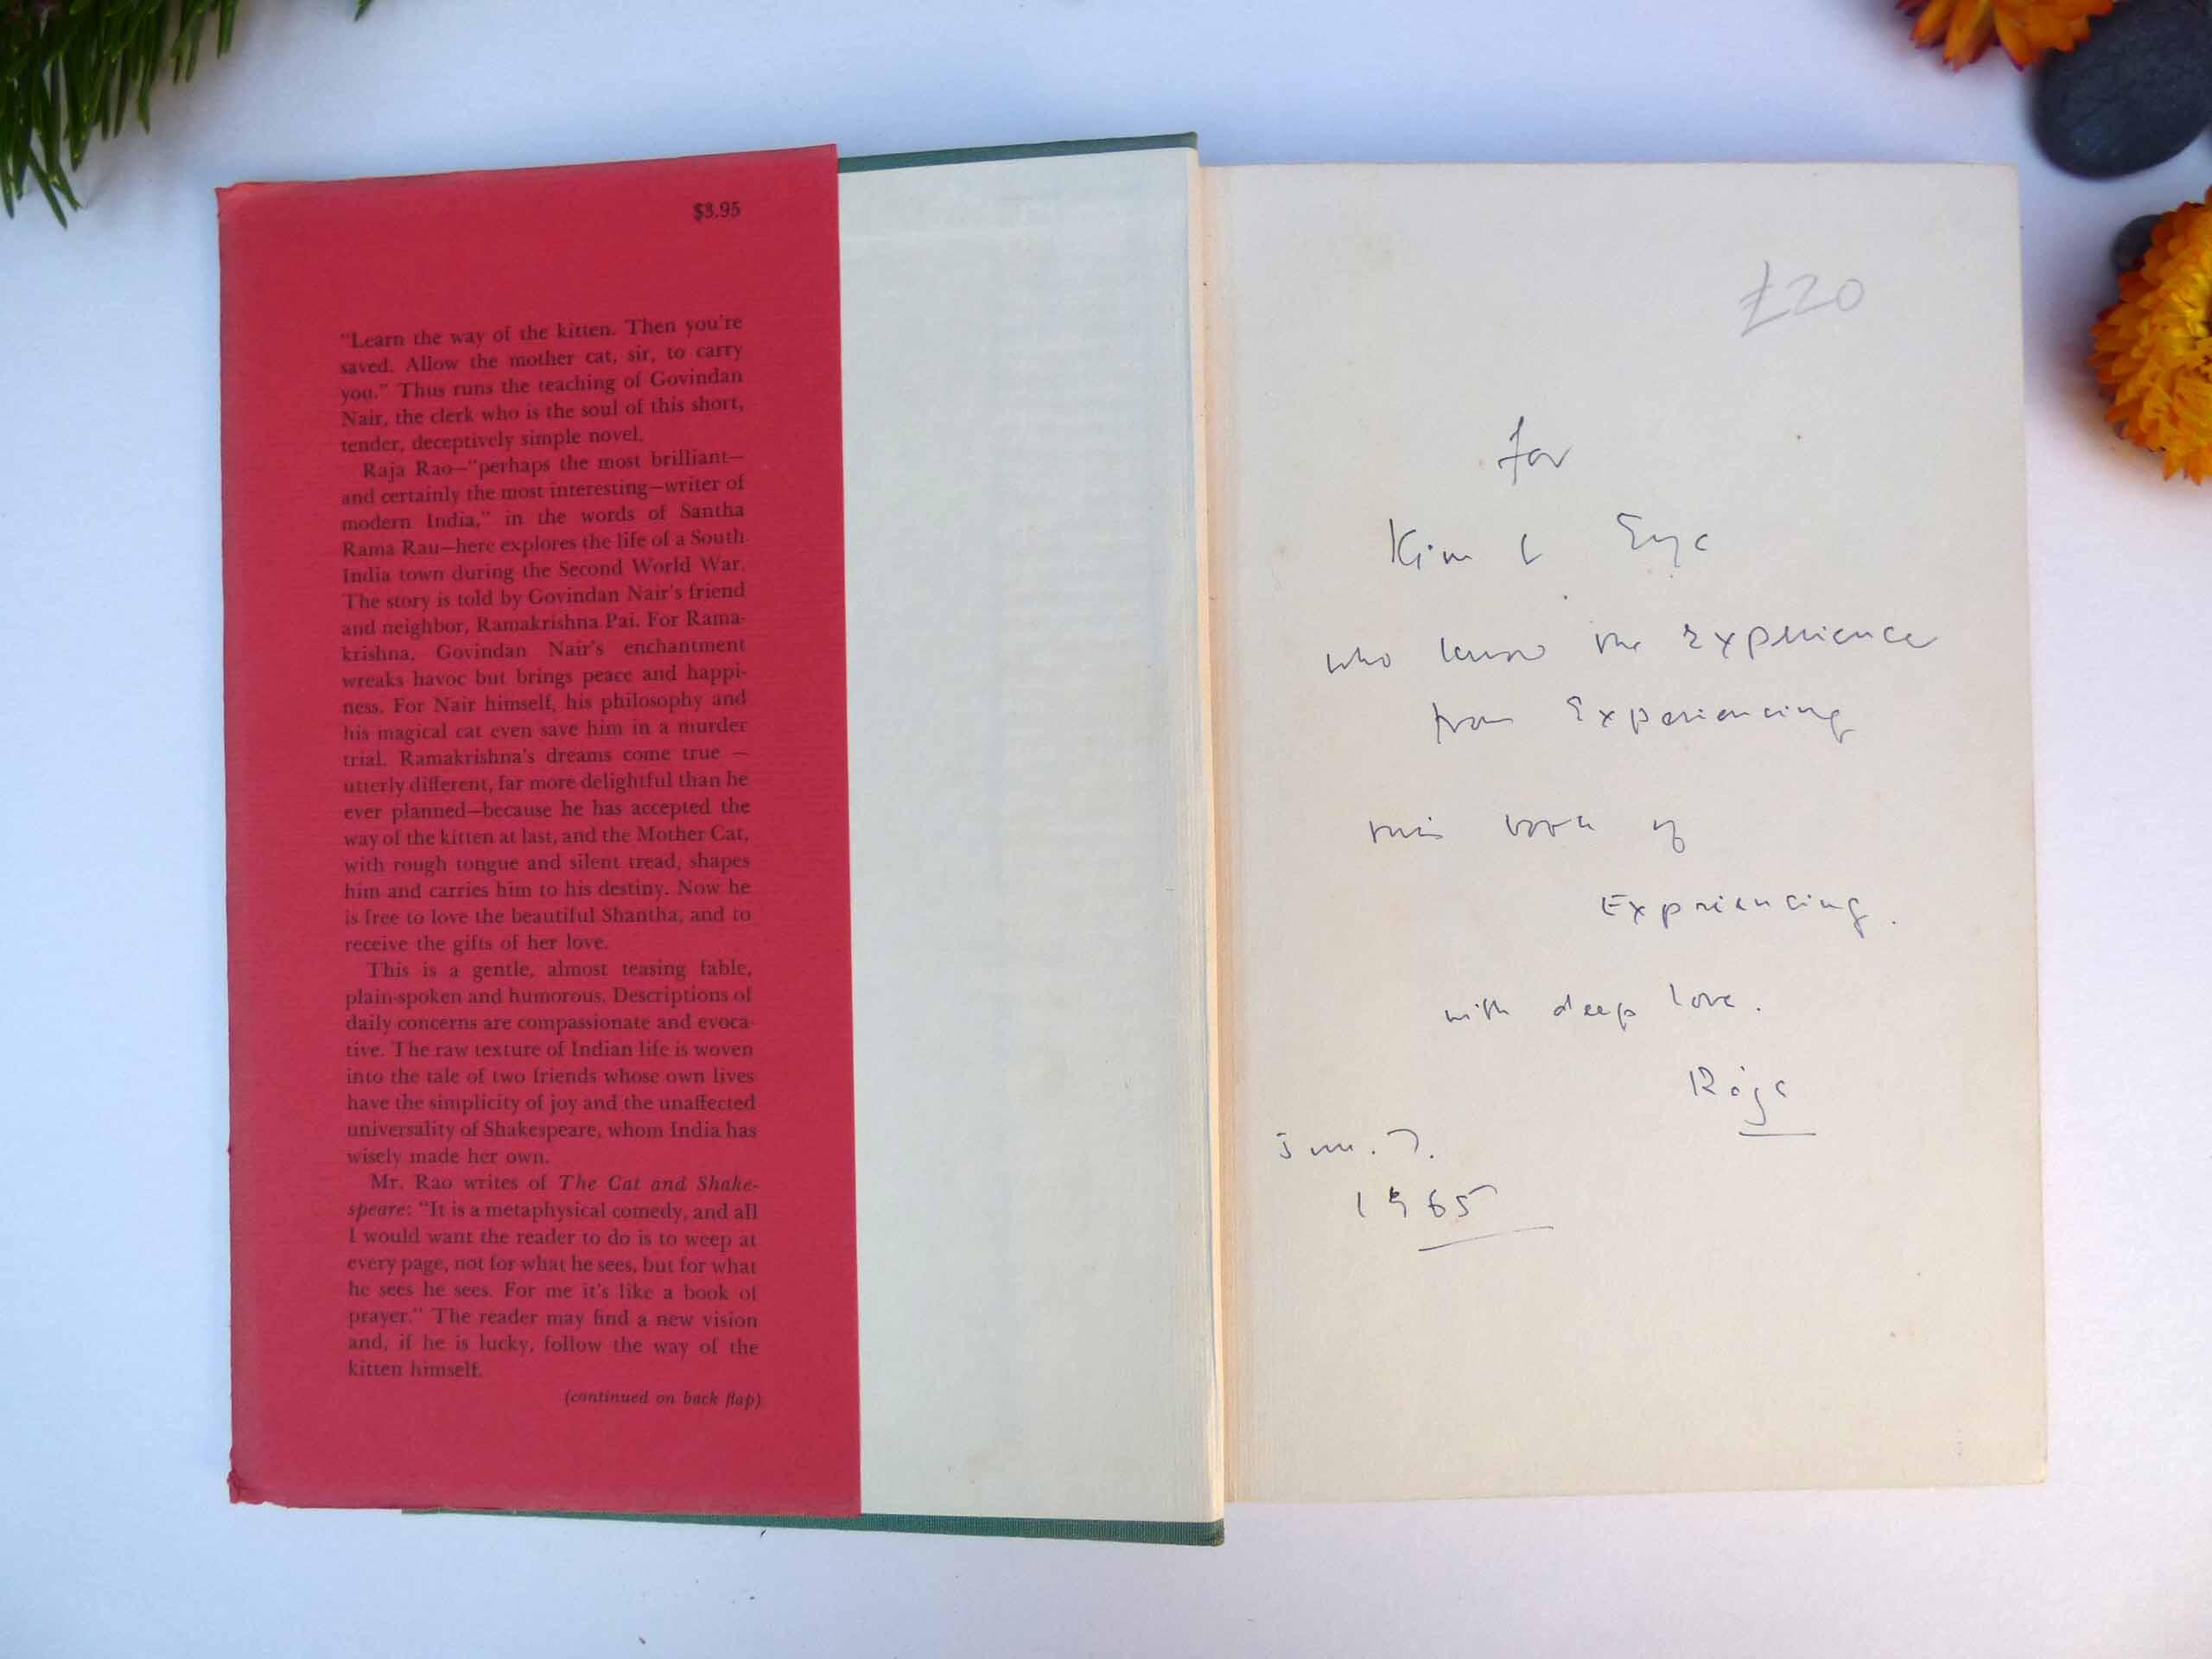 $3.95
"Learn the way of the kitten. Then you're
saved. Allow the mother cat, sir, to carry
you." Thus runs the teaching of Govindan
Nair, the clerk who is the soul of this short,
tender, deceptively simple novel.
Raja Rao—"perhaps the most brilliant—
and certainly the most interesting—writer of
modern India," in the words of Santha
Rama Rau—here explores the life of a South
India town during the Second World War.
The story is told by Govindan Nair's friend
and neighbor, Ramakrishna Pai. For Rama-
krishna, Govindan Nair's enchantment
wreaks havoc but brings peace and happi-
ness. For Nair himself, his philosophy and
his magical cat even save him in a murder
trial. Ramakrishna's dreams come true —
utterly different, far more delightful than he
ever planned—because he has accepted the
way of the kitten at last, and the Mother Cat,
with rough tongue and silent tread, shapes
him and carries him to his destiny. Now he
is free to love the beautiful Shantha, and to
receive the gifts of her love.
This is a gentle, almost teasing fable,
plain-spoken and humorous. Descriptions of
daily concerns are compassionate and evoca-
tive. The raw texture of Indian life is woven
into the tale of two friends whose own lives
have the simplicity of joy and the unaffected
universality of Shakespeare, whom India has
wisely made her own.
Mr. Rao writes of The Cat and Shake-
speare: "It is a metaphysical comedy, and all
I would want the reader to do is to weep at
every page, not for what he sees, but for what
he sees he sees. For me it's like a book of
prayer." The reader may find a new vision
and, if he is lucky, follow the way of the
kitten himself.
(continued on back flap)
£20
for
Kim
who know the Experience
from Experiencing
this book of
Experiencing.
with deep love.
Raja
7.
1965